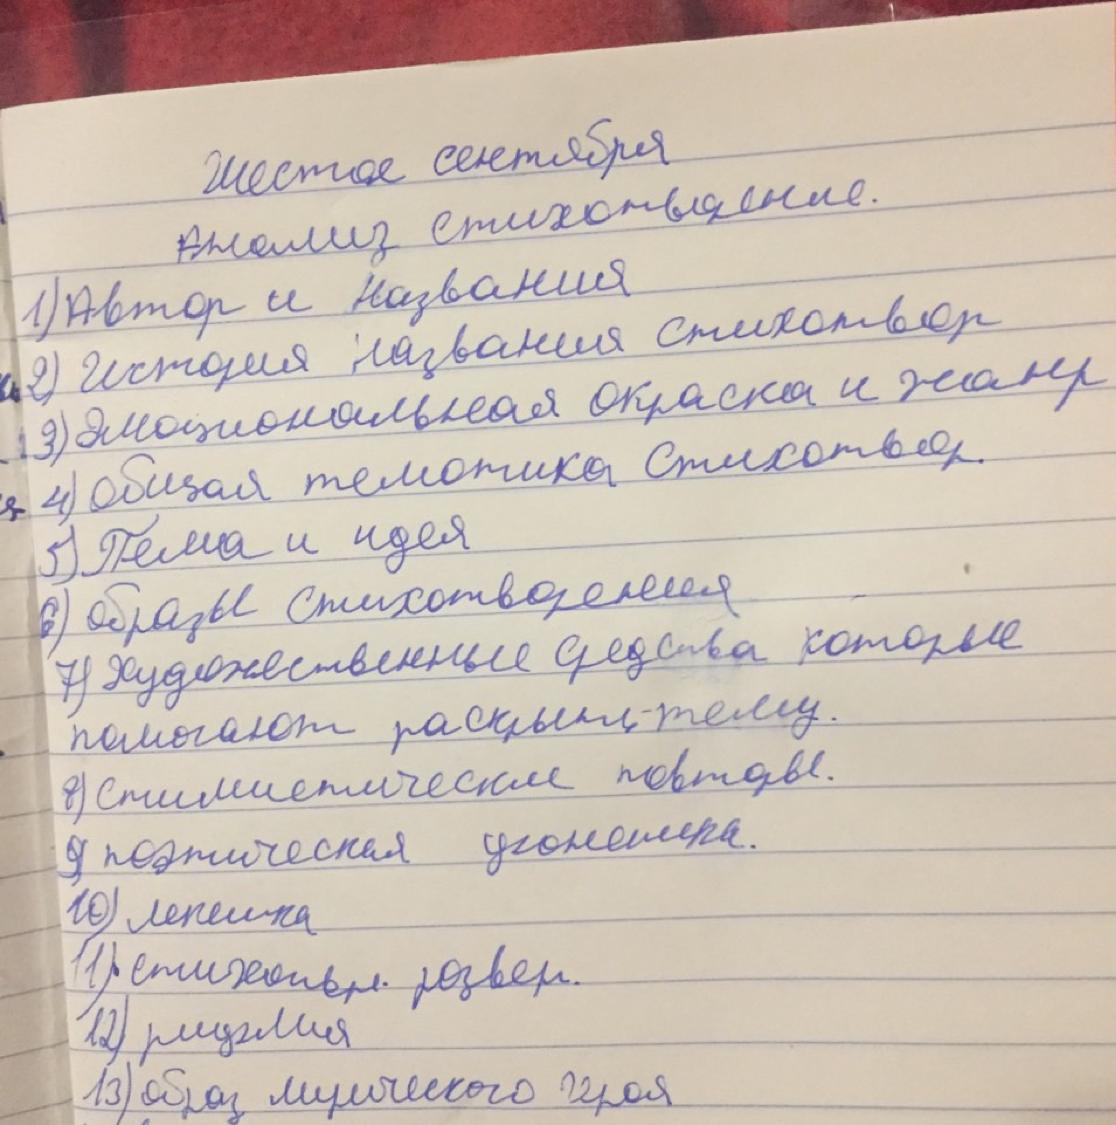 Шестое сентября
Анализ стихотворение.
1) Автор и названия
2) История названия стихотвор
3) Эмоциональная окраска и жанр
4) Общая тематика стихотвор.
5) Тема и идея
6) образы стихотворения
7) художественные средства которые
помогают раскрыть тему.
8) стилистические повторы.
9) поэтическая
10) лексика
11) стихотвр. размер.
12) рифмия
13) образ лирического героя